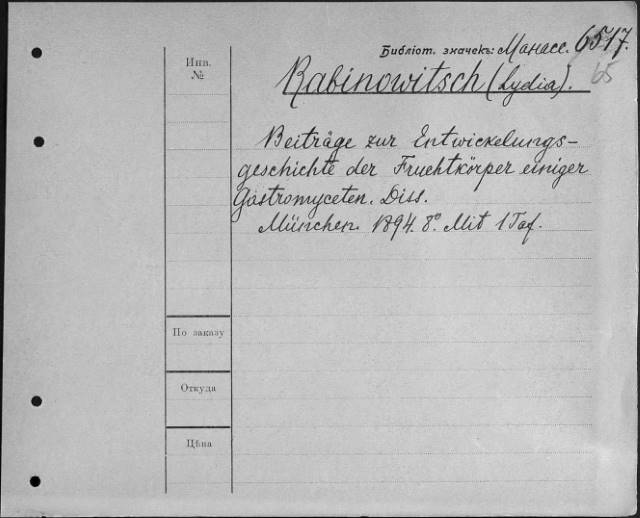 Библіот. значекъ: Манасс. 6517.
65
Инв.
№
Rabinowitsch (Lydia).
Beiträge zur Entwickelungs-
geschichte der Fruchtkörper einiger
Gastromyceten. Diss.
München. 1894. 8º. Mit 1 Taf.
По заказу
Откуда
Цѣна